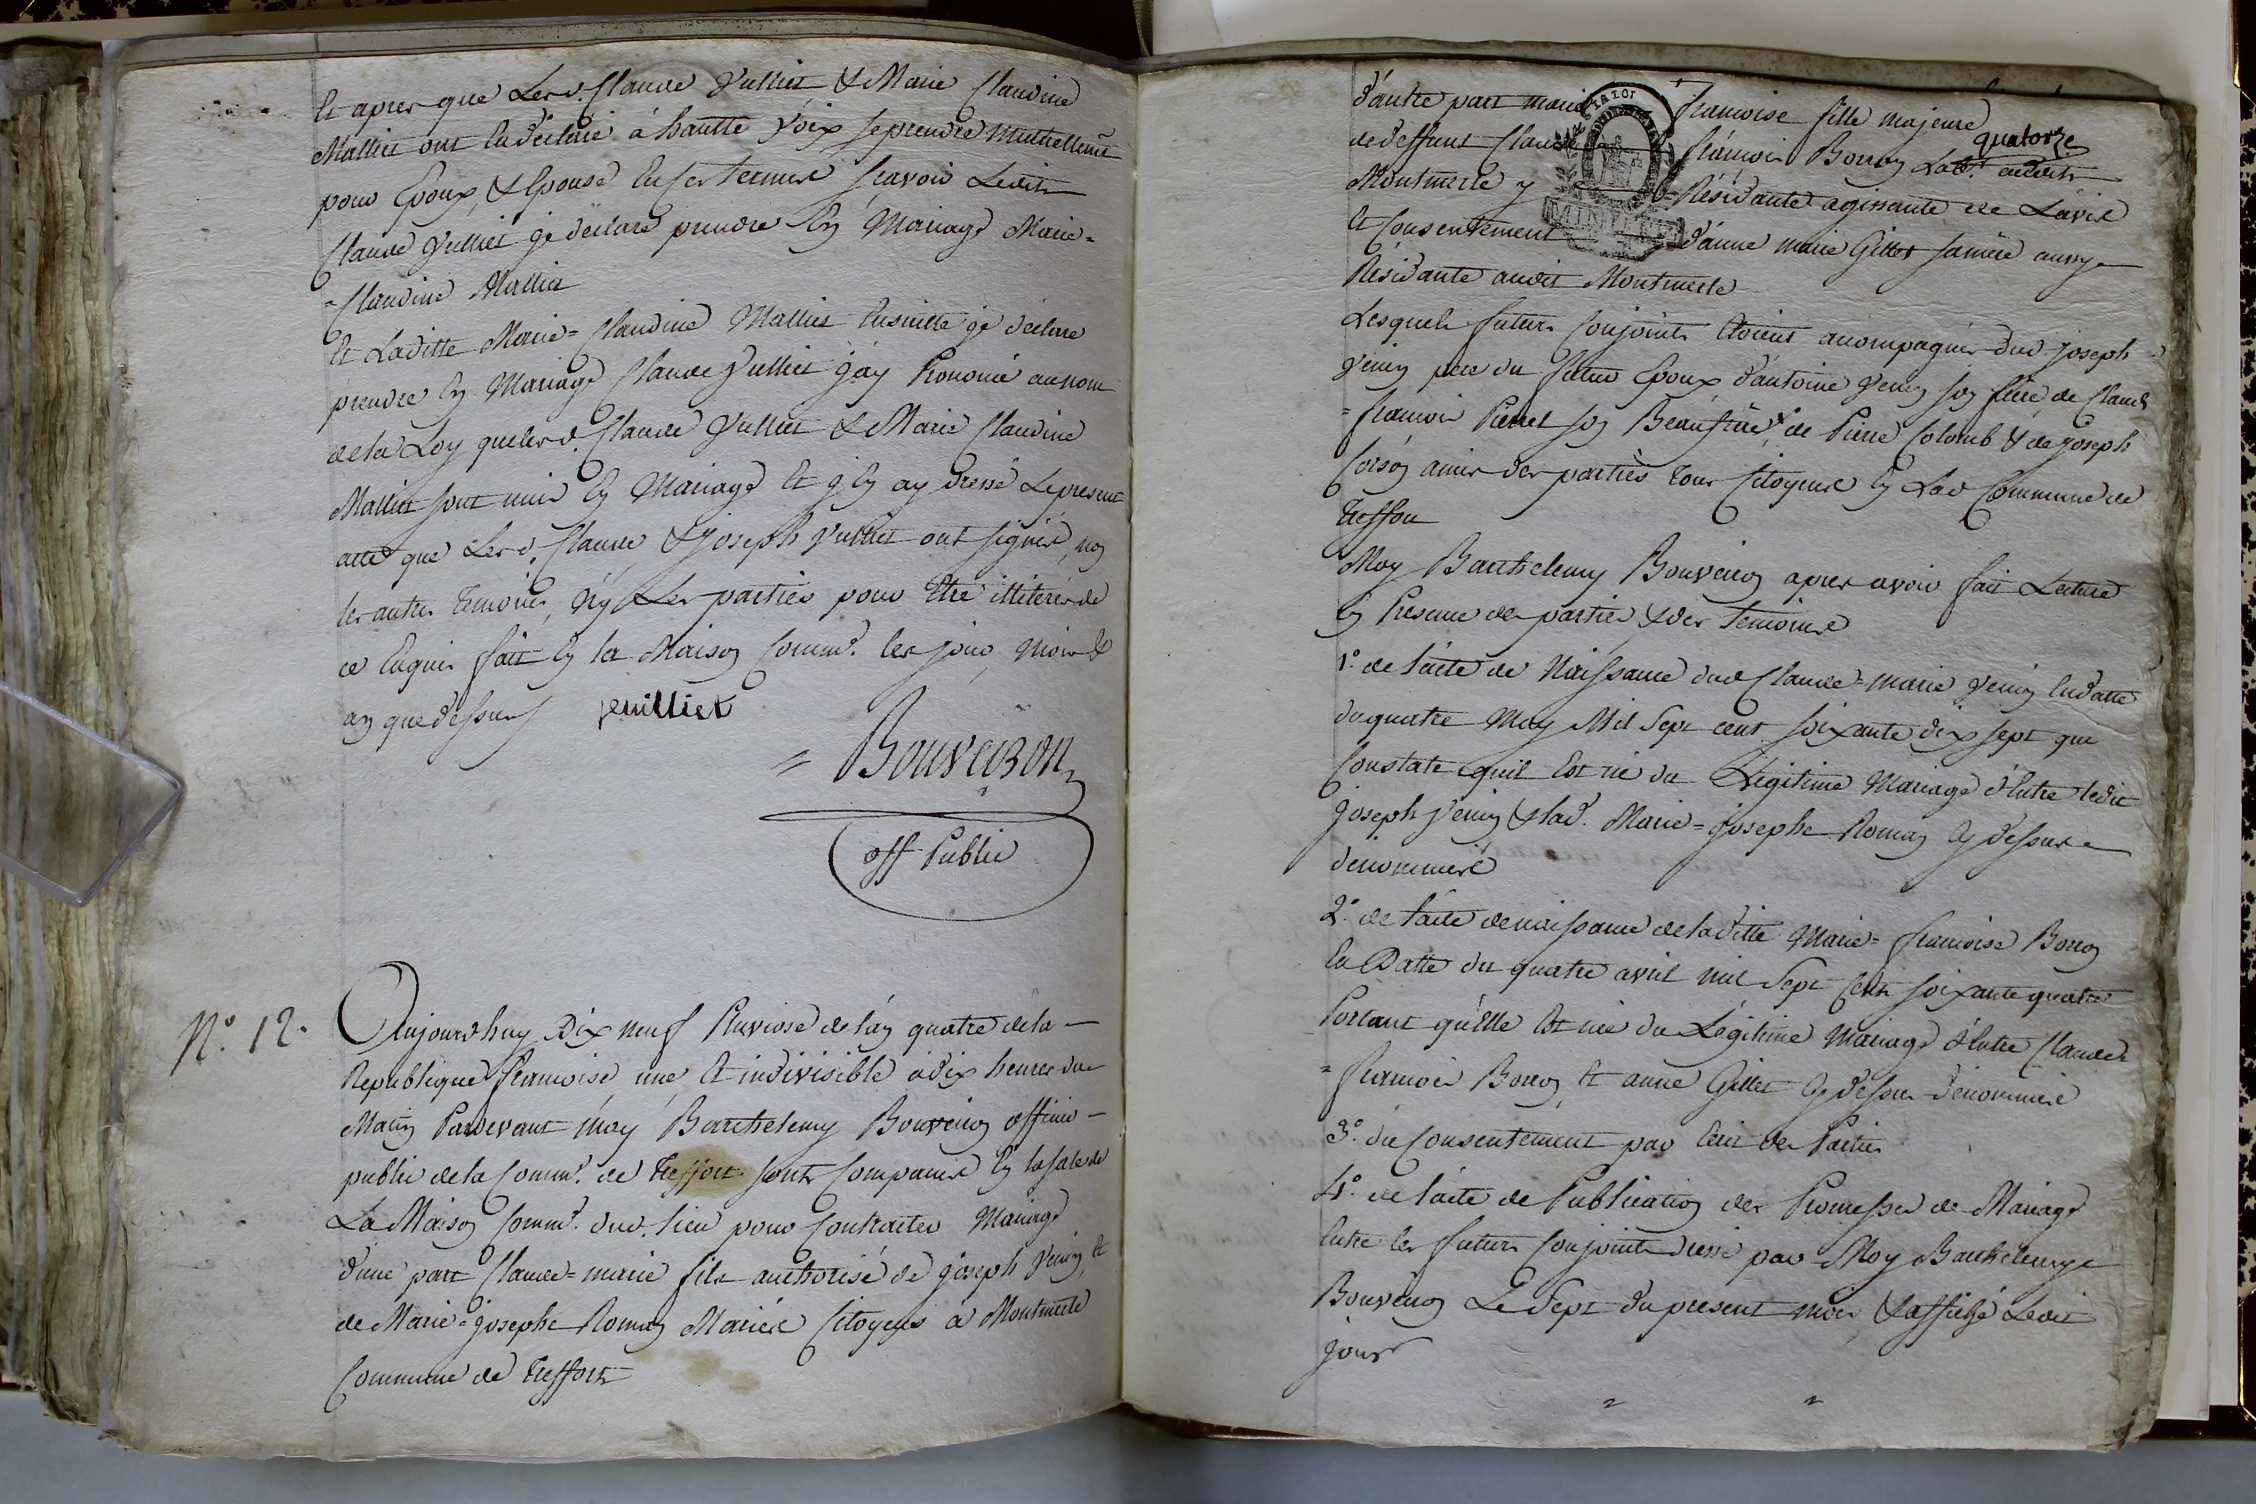 Et apres que Lesd. Claude Vulliet & Marie Claudine
Malliet ont Eu déclaré á hautte Voix se prendre Mutuellemt
pour Epoux, & Epouse En ses termes sçavoir Ledit
Claude Vulliet je déclare prendre En Mariage Marie=
=Claudine Malliet
Et Laditte Marie=Claudine Malliet Ensuitte je déclare
prendre En Mariage Claude Vulliet j'ay Prononcé au nom
de la Loy que lesd. Claude Vulliet & Marie Claudine
Malliet sont unis En Mariage Et j'En ay dressé Le present
acte que Lesd. Claude & joseph Vulliet ont signés, non
les autres temoins, n'y Les parties pour Etre illiterés de
ce Enquis fait En la Maison Comme. les jour, Mois &
an que dessus
vuilliet
= Bouveiron
off Public
N.° 12.
Aujourdhuy Dix neuf Pluviose de l'an quatre de la
Republique françoise, une, Et indivisible á dix heures du
Matin Pardevant moy Barthelemy Bouveiron officier
public de la Comme. de Treffort sont Comparus En la sale de
La Maison Comme. dud. lieu pour Contracter Mariage
d'une part Claude=marie fils authorisé de joseph Venin, Et
de Marie=josephe Roman Mariés Citoyens á Montmerle
Commune de Treffort
quatorze
d'autre part marie françoise fille majeure
de deffunt Claude françois Borron Labr. audit
Montmerle y Résidante agissante de L'avis
Et Consentement d'anne marie Gillet sa mère aussy
Résidante audit Montmerle
Lesquels futurs Conjoints Etoient accompagnés dud. joseph
Venin père du futur Epoux d'antoine Venin son frère de Claude
=françois Pierrel son Beaufrère & de Pierre Colomb & de joseph
Corson amis des parties tous Citoyens En Lad. Commune de
Treffort
Moy Barthelemy Bouveiron apres avoir fait Lecture
En Presence des parties & des temoins
1.° de l'acte de Naissance dud. Claude=marie Venin En datte
du quatre May Mil Sept cent soixante dix sept que
Constate qu'il Est né du Légitime Mariage d'Entre ledit
joseph Venin & lad. Marie=josephe Roman Cy dessus
dénommés
2.° de l'acte de naissance de laditte Marie=françoise Borron
En Datte du quatre avril mil Sept Cent soixante quatre
Portant qu'Elle Est née du Légitime Mariage d'Entre Claude
=françois Borron Et anne Gillet Cy dessus dénommés
3.° du Consentement par Ecrit des Parties
4.° de l'acte de Publication des Promesses de Mariage
Entre les futurs Conjoints dressé par Moy Barthelemy
Bouveiron Le Sept du present mois & affiché Ledit
jour